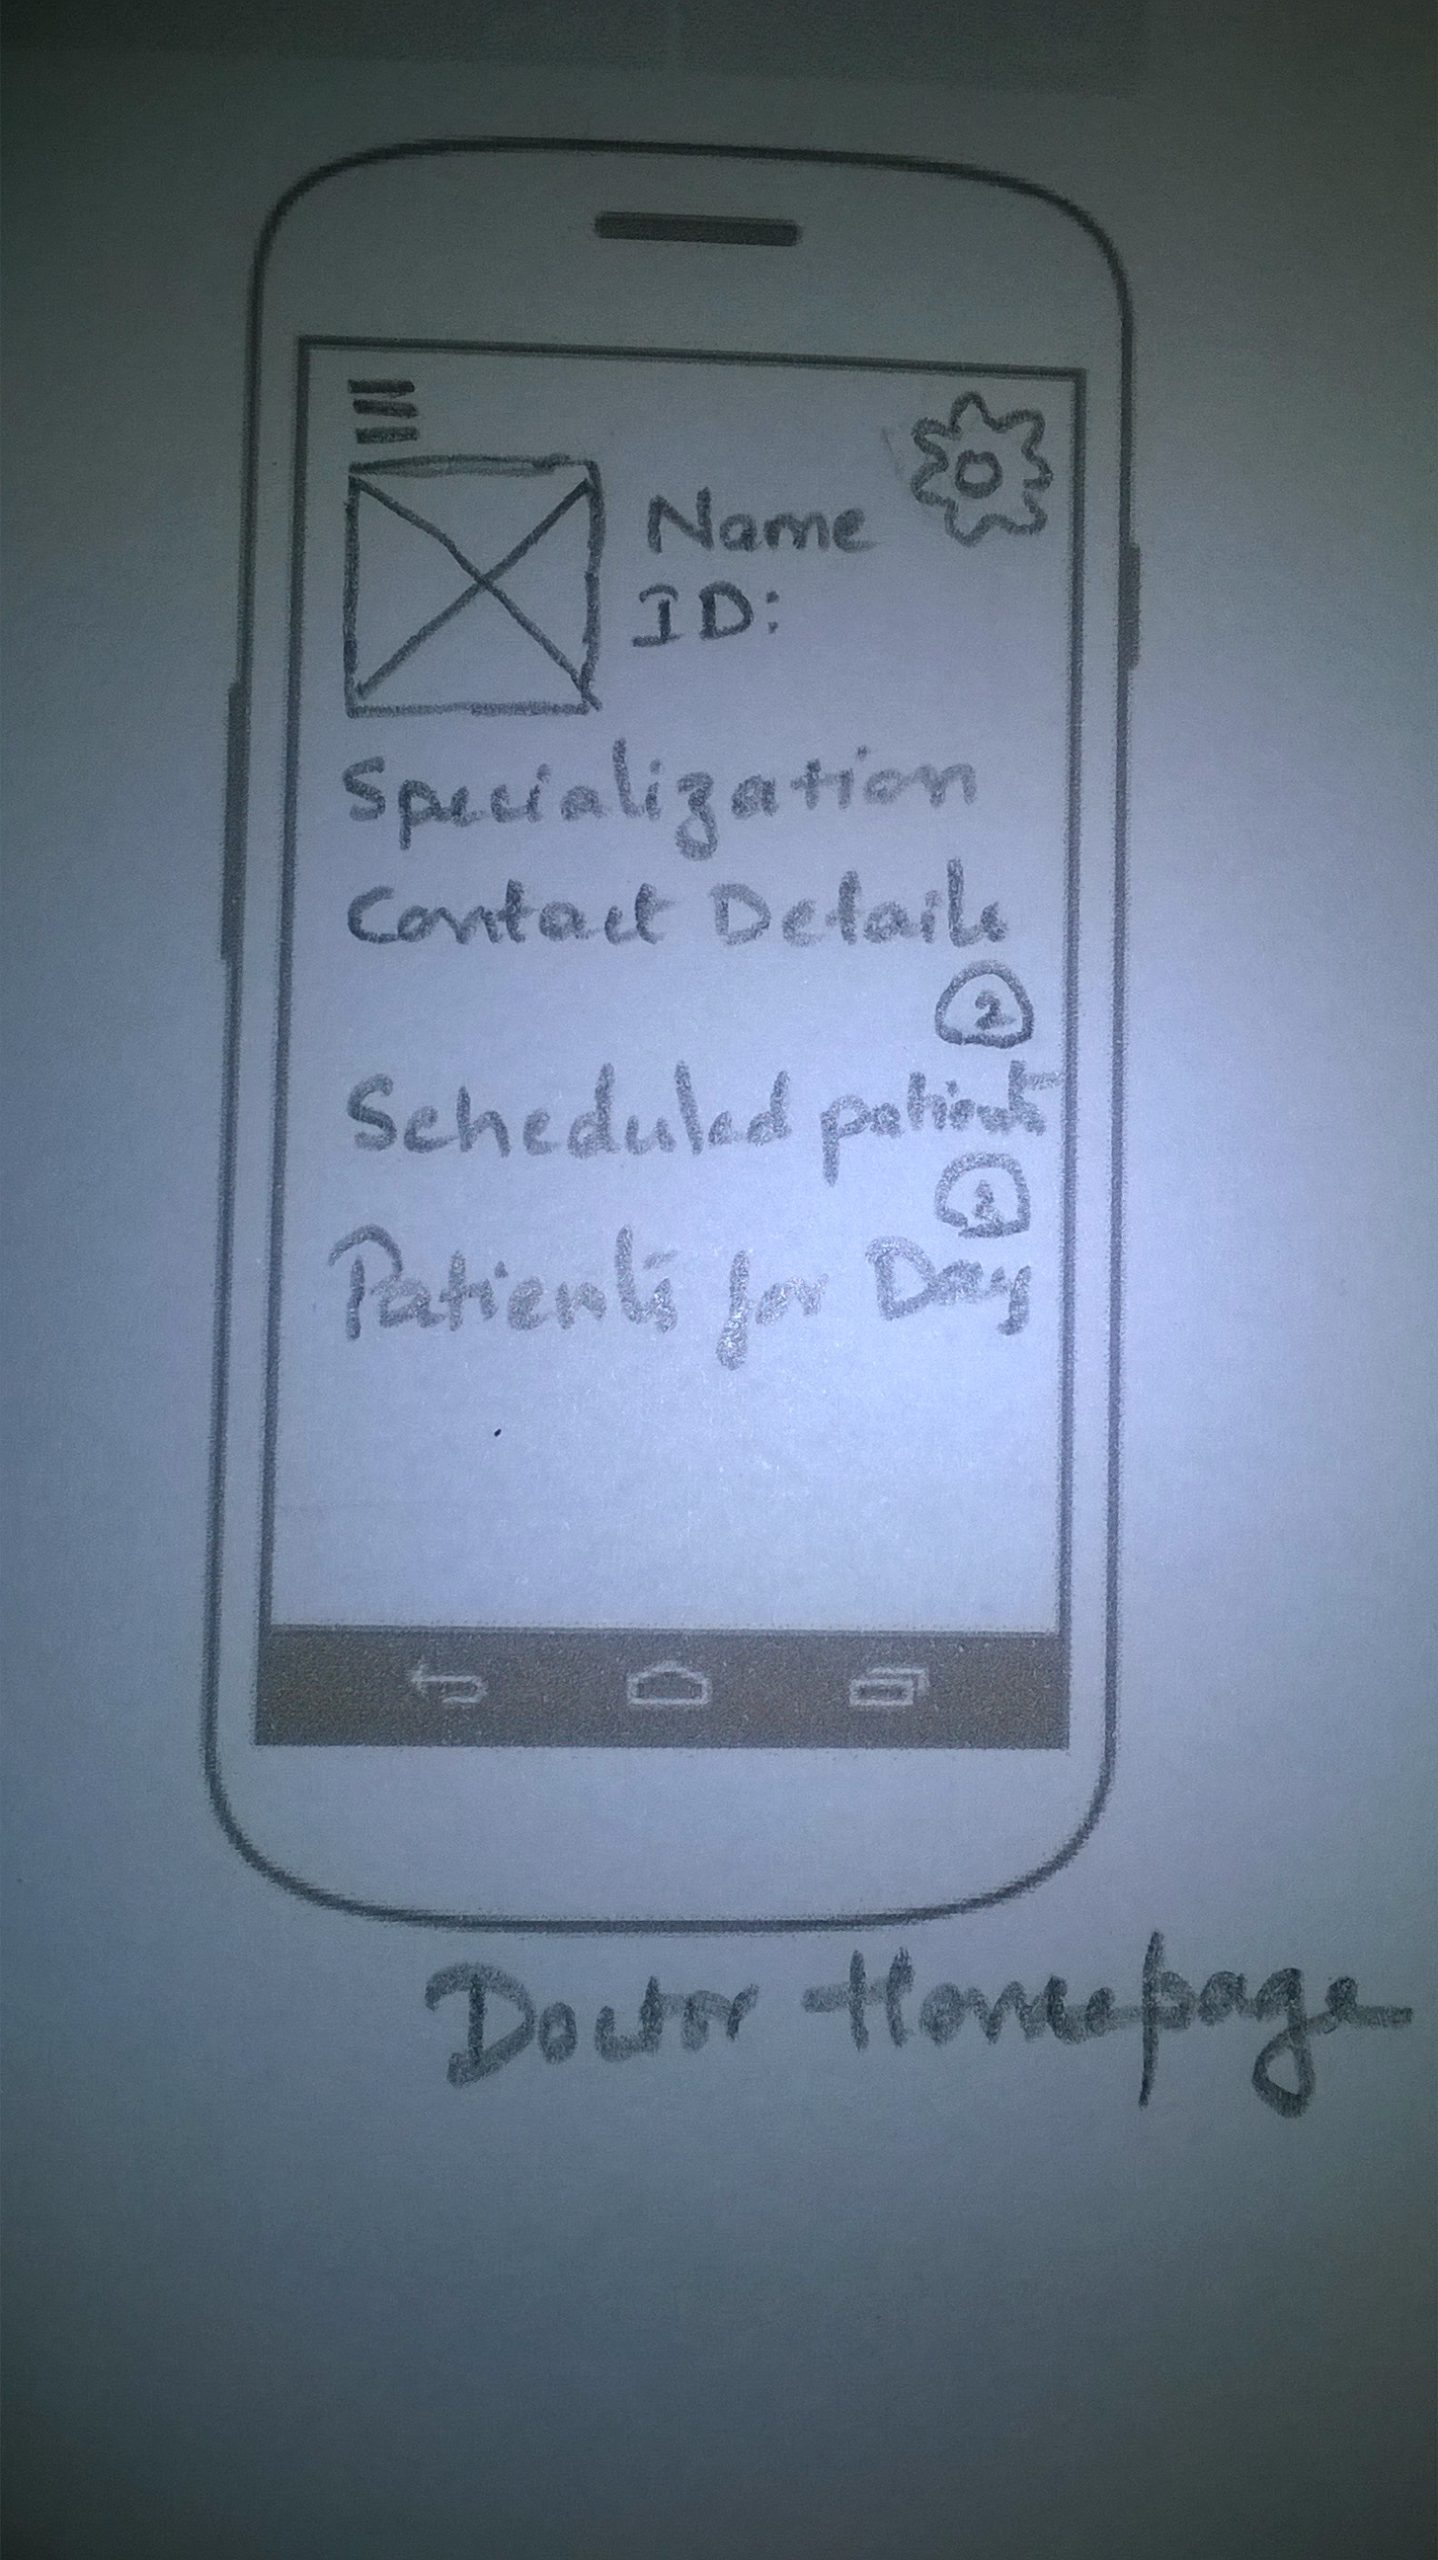 Name
ID:
Specialization
Contact Details
2
Scheduled patients
2
Patients for Day
Doctor Homepage